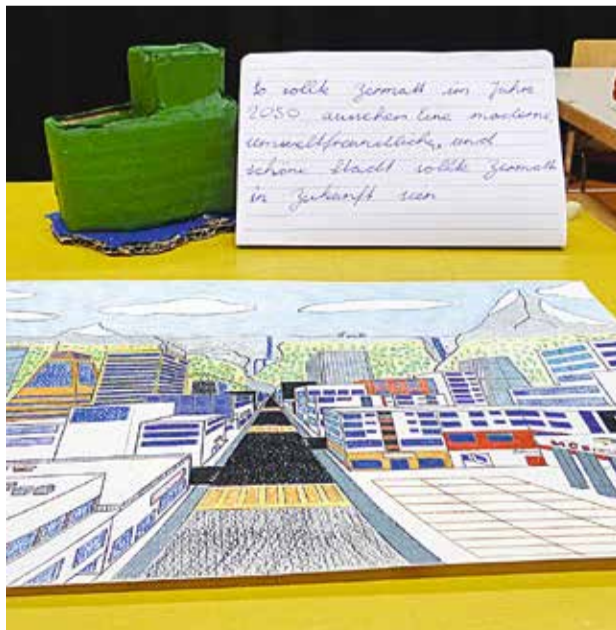 So sollte Zermatt im Jahre
2050 aussehen. Eine moderne,
umweltfreundliche, und
schöne Stadt sollte Zermatt
in Zukunft sein